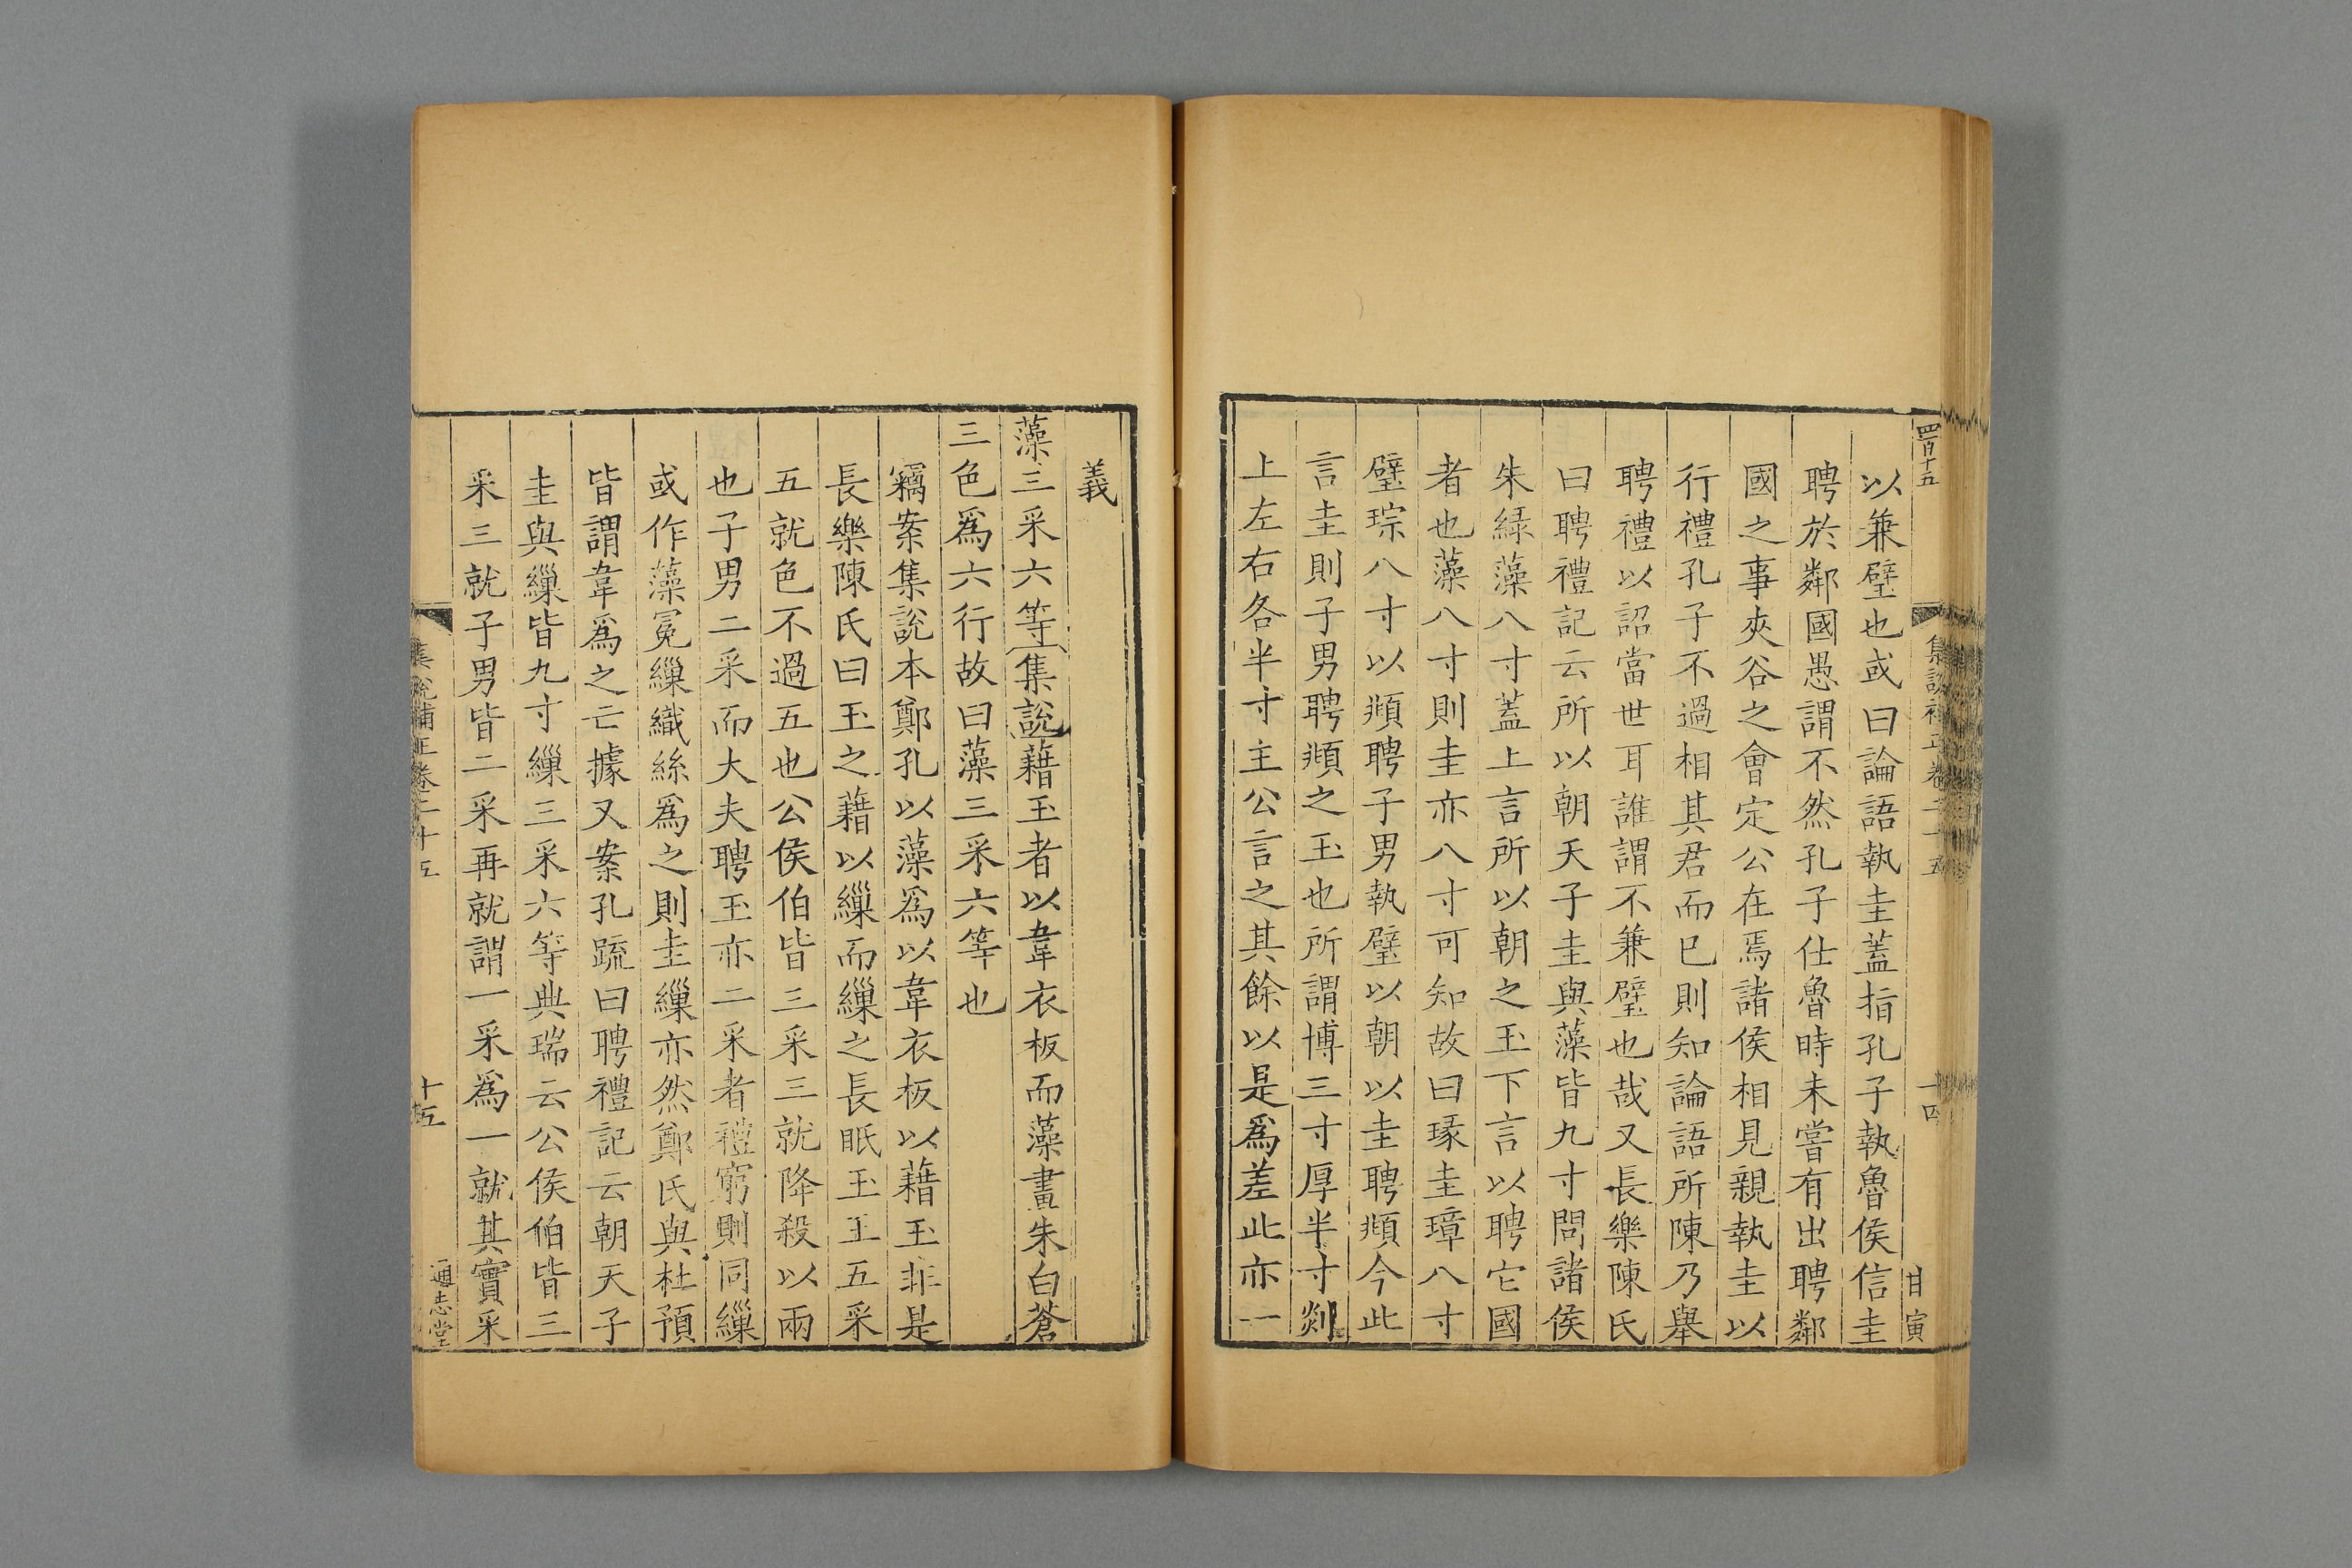 四百十五
集說補正卷二十五
十四
甘寅
以兼璧也或曰論語執圭蓋指孔子執魯侯信圭
聘於鄰國愚謂不然孔子仕魯時未嘗有出聘鄰
國之事夾谷之會定公在焉諸侯相見親執圭以
行禮孔子不過相其君而已則知論語所陳乃舉
聘禮以詔當世耳誰謂不兼璧也哉又長樂陳氏
曰聘禮記云所以朝天子圭與藻皆九寸問諸侯
朱綠藻八寸蓋上言所以朝之玉下言以聘它國
者也藻八寸則圭亦八寸可知故曰瑑圭璋八寸
璧琮八寸以頫聘子男執璧以朝以圭聘頫今此
言圭則子男聘頫之玉也所謂博三寸厚半寸剡
上左右各半寸主公言之其餘以是爲差此亦一
義
藻三采六等集說藉玉者以韋衣板而藻畫朱白蒼
三色爲六行故曰藻三采六等也
竊案集說本鄭孔以藻爲以韋衣板以藉玉非是
長樂陳氏曰玉之藉以繅而繅之長眂玉玉五采
五就色不過五也公侯伯皆三采三就降殺以兩
也子男二采而大夫聘玉亦二采者禮窮則同繅
或作藻冕繅織絲爲之則圭繅亦然鄭氏與杜預
皆謂韋爲之亡據又案孔疏曰聘禮記云朝天子
圭與繅皆九寸繅三采六等典瑞云公侯伯皆三
采三就子男皆二采再就謂一采爲一就其實采
集說補正卷二十五
十五
通志堂